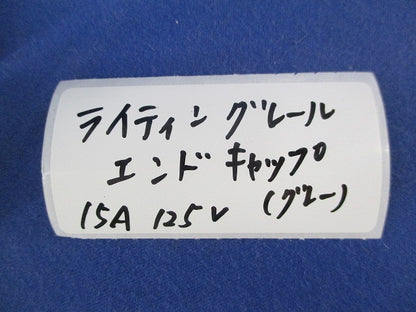 ライティングレール
エンドキャップ
15A 125V (グレー)